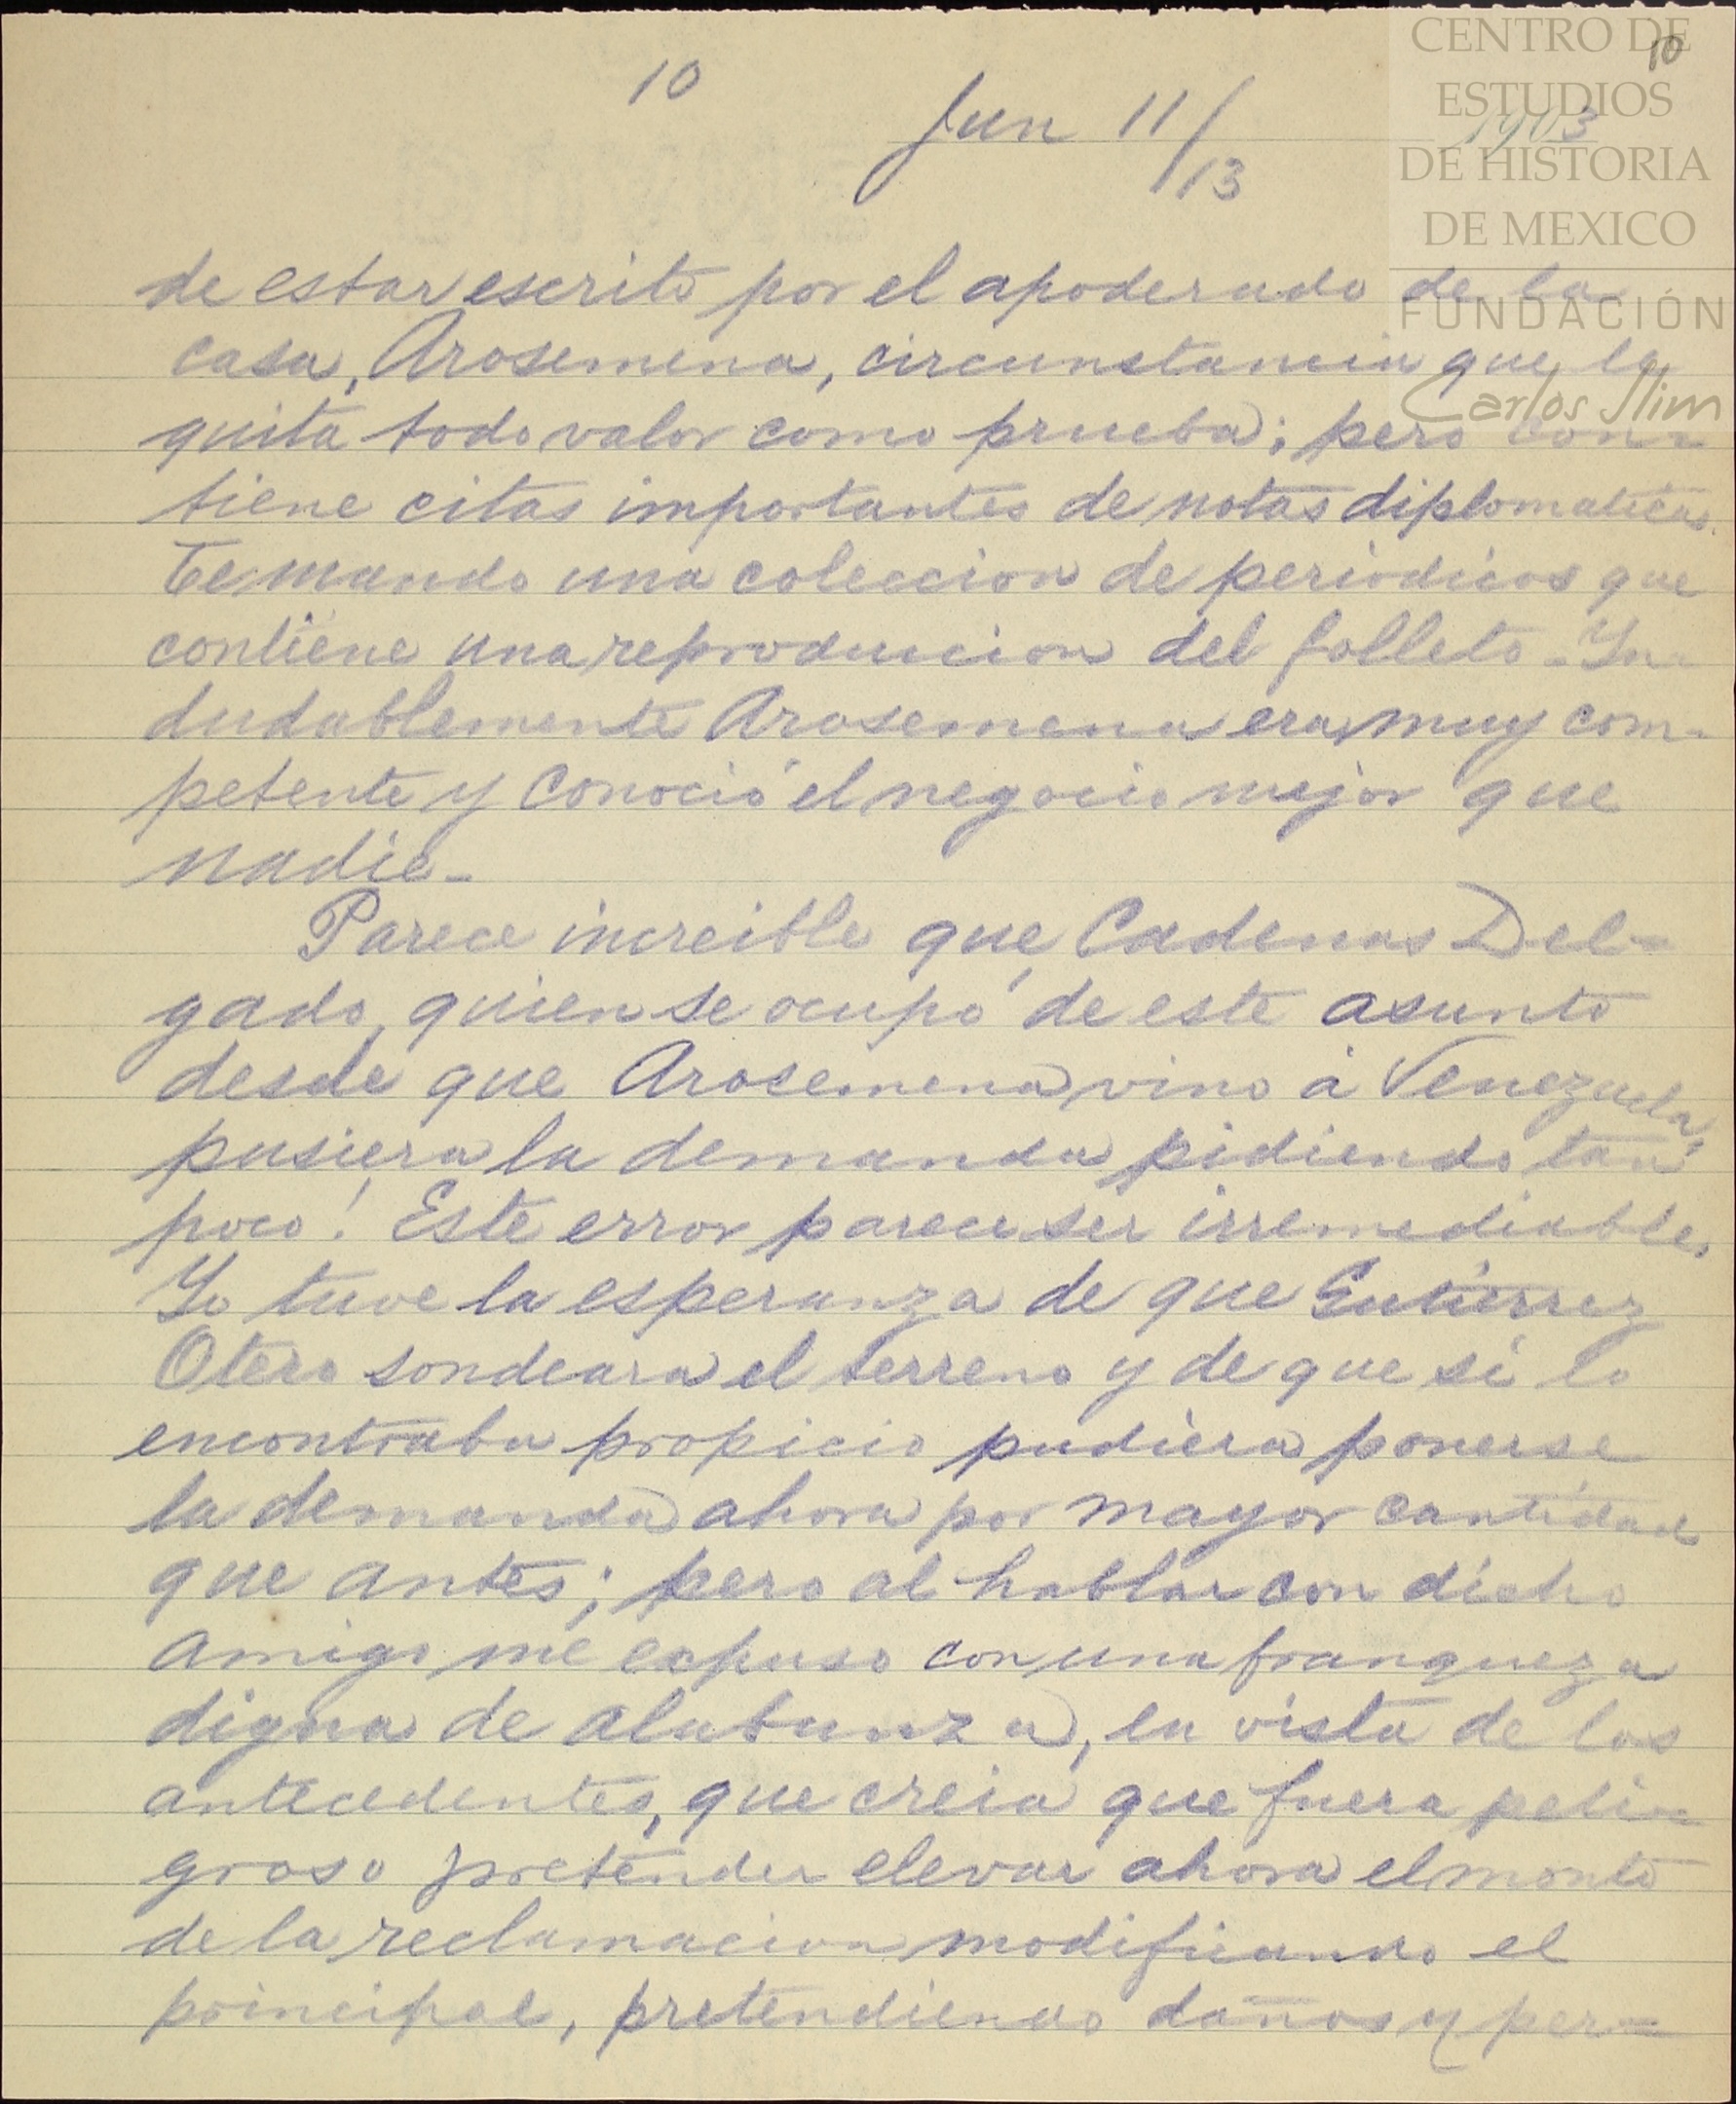 10
10
Jun 11/13
1903
CENTRO DE
ESTUDIOS
DE HISTORIA
DE MEXICO
FUNDACIÓN
Carlos Slim
de estar escrito por el apoderado de la
casa, Arosemena, circunstancia que le
quita todo valor como prueba; pero con-
tiene citas importantes de notas diplomaticas.
Te mando una coleccion de periodicos que
contiene una reproduccion del folleto. In-
dudablemente Arosemena era muy com-
petente y conoció el negocio mejor que
nadie.
Parece increible que Cadenas Del-
gado, quien se ocupó de este asunto
desde que Arosemena vino á Venezuela,
pusiera la demanda pidiendo tan
poco! Este error parece ser irremediable.
Yo tuve la esperanza de que Gutierrez
Otero sondeara el terreno y de que si lo
encontraba propicio pudiera ponerse
la demanda ahora por mayor cantidad
que antes; pero al hablar con dicho
amigo me expuso con una franqueza
digna de alabanza, en vista de los
antecedentes, que creia que fuera peli-
groso pretender elevar ahora el monto
de la reclamacion modificando el
principal, pretendiendo daños y per-